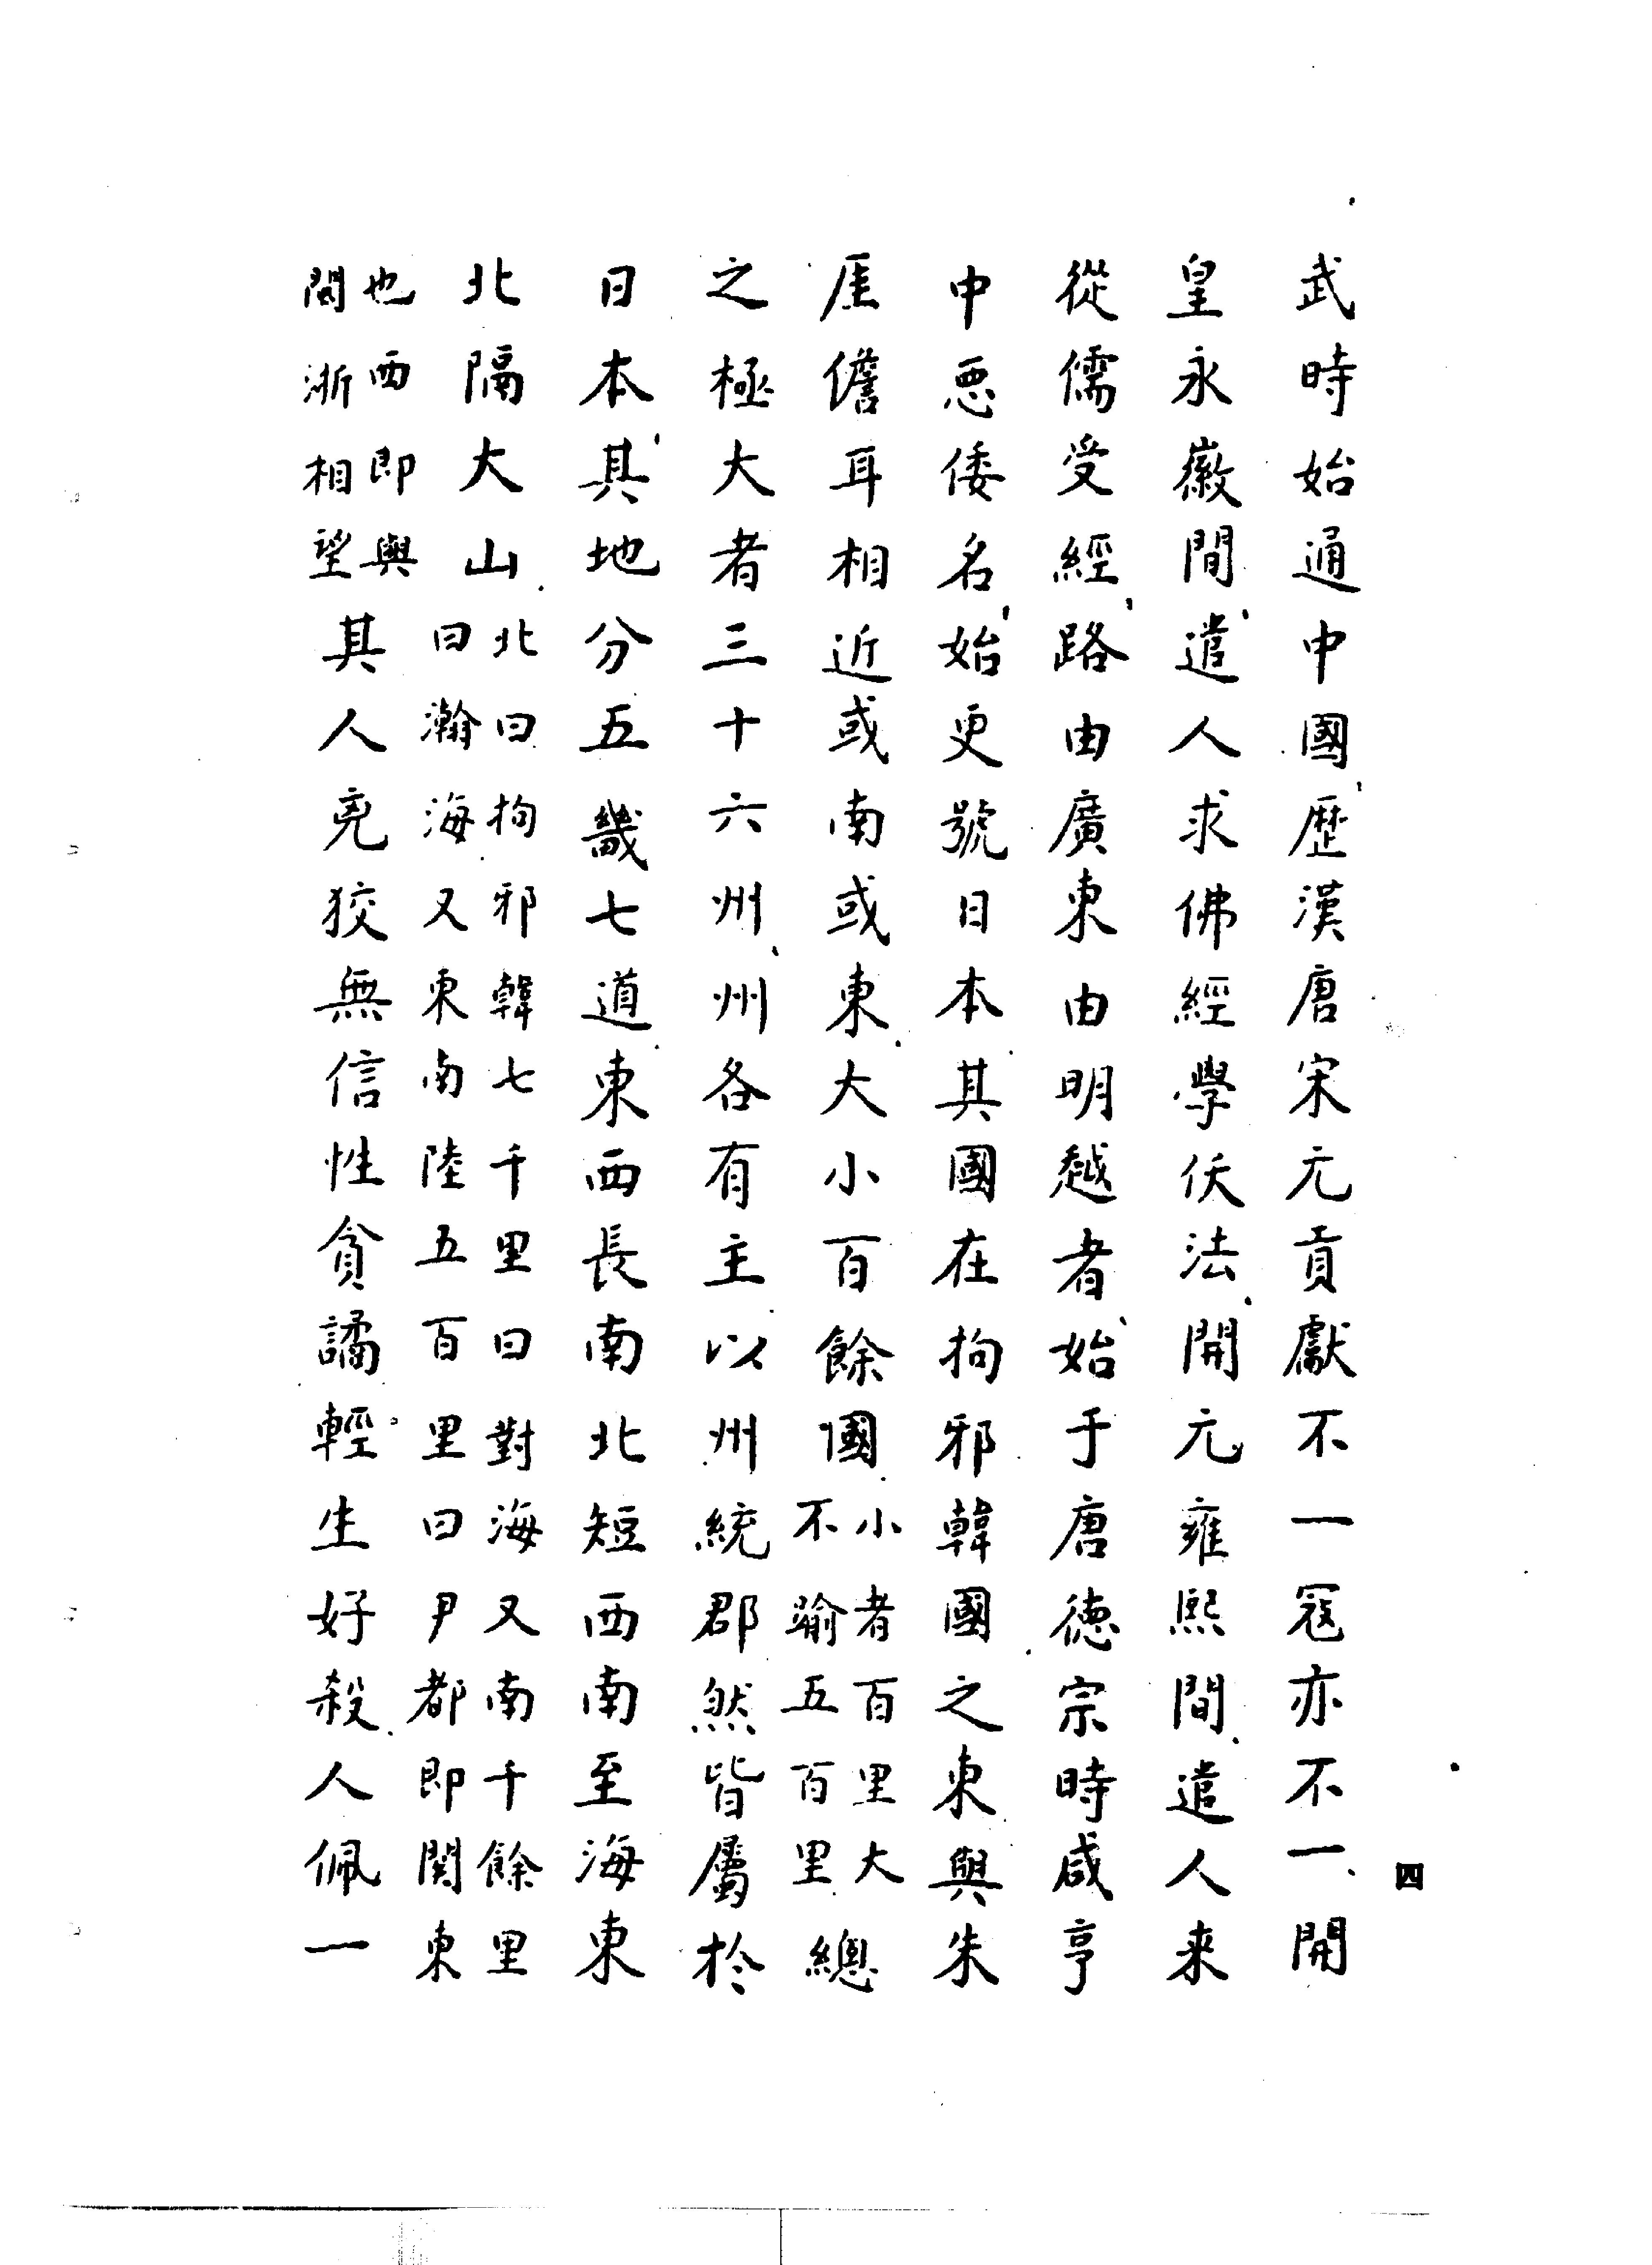 四
武時始通中國歷漢唐宋元貢獻不一寇亦不一開
皇永徽間遣人求佛經學仸法開元雍熙間遣人来
從儒受經路由廣東由明越者始于唐德宗時咸亨
中惡倭名始更號日本其國在拘邪韓國之東與朱
厓儋耳相近或南或東大小百餘國小者百里大
不踰五百里總
之極大者三十六州州各有主以州統郡然皆屬於
日本其地分五畿七道東西長南北短西南至海東
北隔大山北曰拘邪韓七千里曰對海又南千餘里
曰瀚海又東南陸五百里曰尹都即関東
也西即與
閩浙相望其人兇狡無信性貪譎輕生好殺人佩一